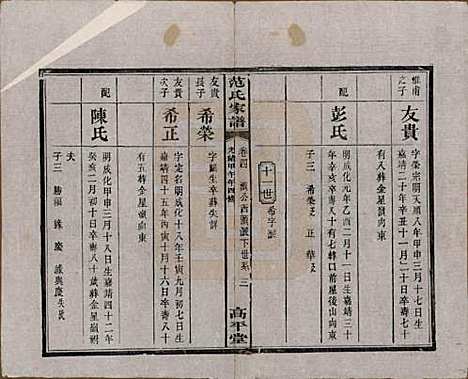 惟甫
之子
友貴
字榮宛明天順八年甲申三月十七日生
嘉靖二十年辛丑十一月十七日卒壽七十
有八葬金星嶺向東
配
彭氏
明成化元年乙酉二月十一日生嘉靖四十
年辛酉卒壽八十有七轉口前星後山向東
子三 希榮 正 華
十一世 希字派
范氏家譜
卷四
光緒甲午年四修
派下世系
三
高平堂
友貴
長子
希榮
字 生卒葬失詳
友貴
次子
希正
字定名明成化十八年壬寅九月初七日生
嘉靖四十五年丙寅十月十六日卒壽八十
有五葬金星嶺向東
配
陳氏
明成化甲申三月十八日生嘉靖四十二年
癸亥二月初十日卒壽八十歲葬金星嶺
夫
子三 勝福 緣 慶 緣與慶失民